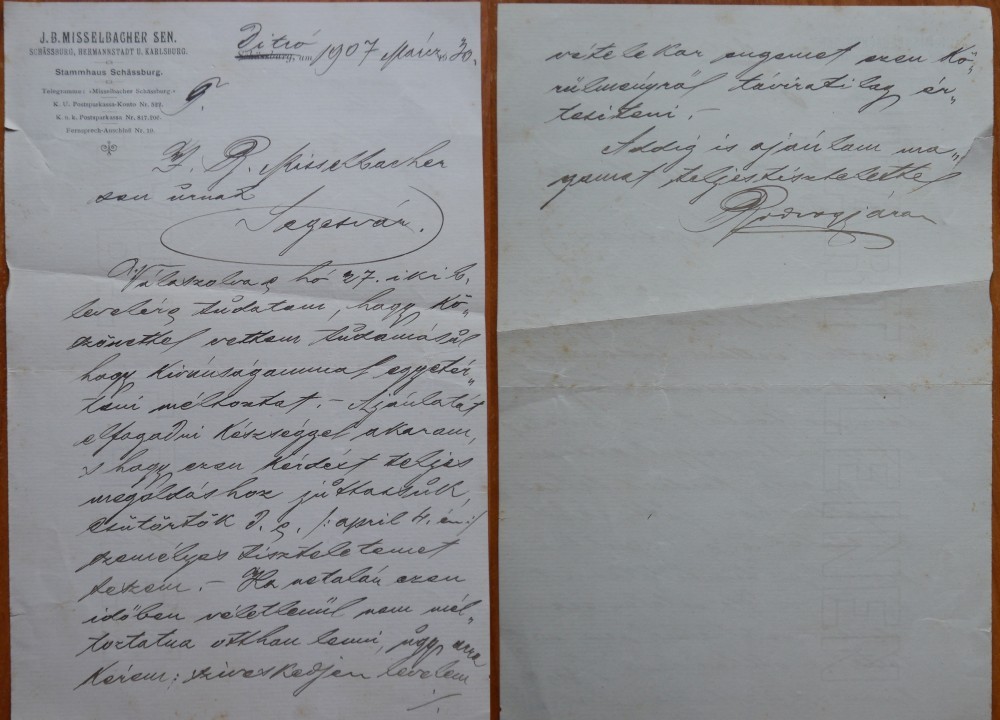 J. B. MISSELBACHER SEN.
SCHÄSSBURG, HERMANNSTADT U. KARLSBURG.
Stammhaus Schässburg.
Telegramme: «Misselbacher Schässburg»
K. U. Postsparkassa-Konto Nr.
K. u. k. Postsparkassa Nr.
Fernsprech-Anschluß Nr. 10.
Ditró
Schässburg, am 1907 Márcz 30.
Misselbacher
sen úrnak
Segesvár.
Válaszolva e hó 27. iki b.
levelére tudatom, hogy kö„
szönettel vettem tudomásúl
hogy kivánságommal egyetér„
teni méltóztat. – Ajánlatát
elfogadni készséggel akarom,
s hogy ezen kérdést teljes
megoldáshoz júttassuk,
csütörtök d. e. /: april 4. én :/
személyes tiszteletemet
teszem. – Ha netalán ezen
időben véletlenül nem mél„
toztatna otthon lenni, úgy arra
kérem: sziveskedjen levelem
./.
vételekor engemet ezen kö„
rülményről táviratilag ér„
tesiteni. –
Addig is ajánlom ma„
gamat teljes tisztelettel